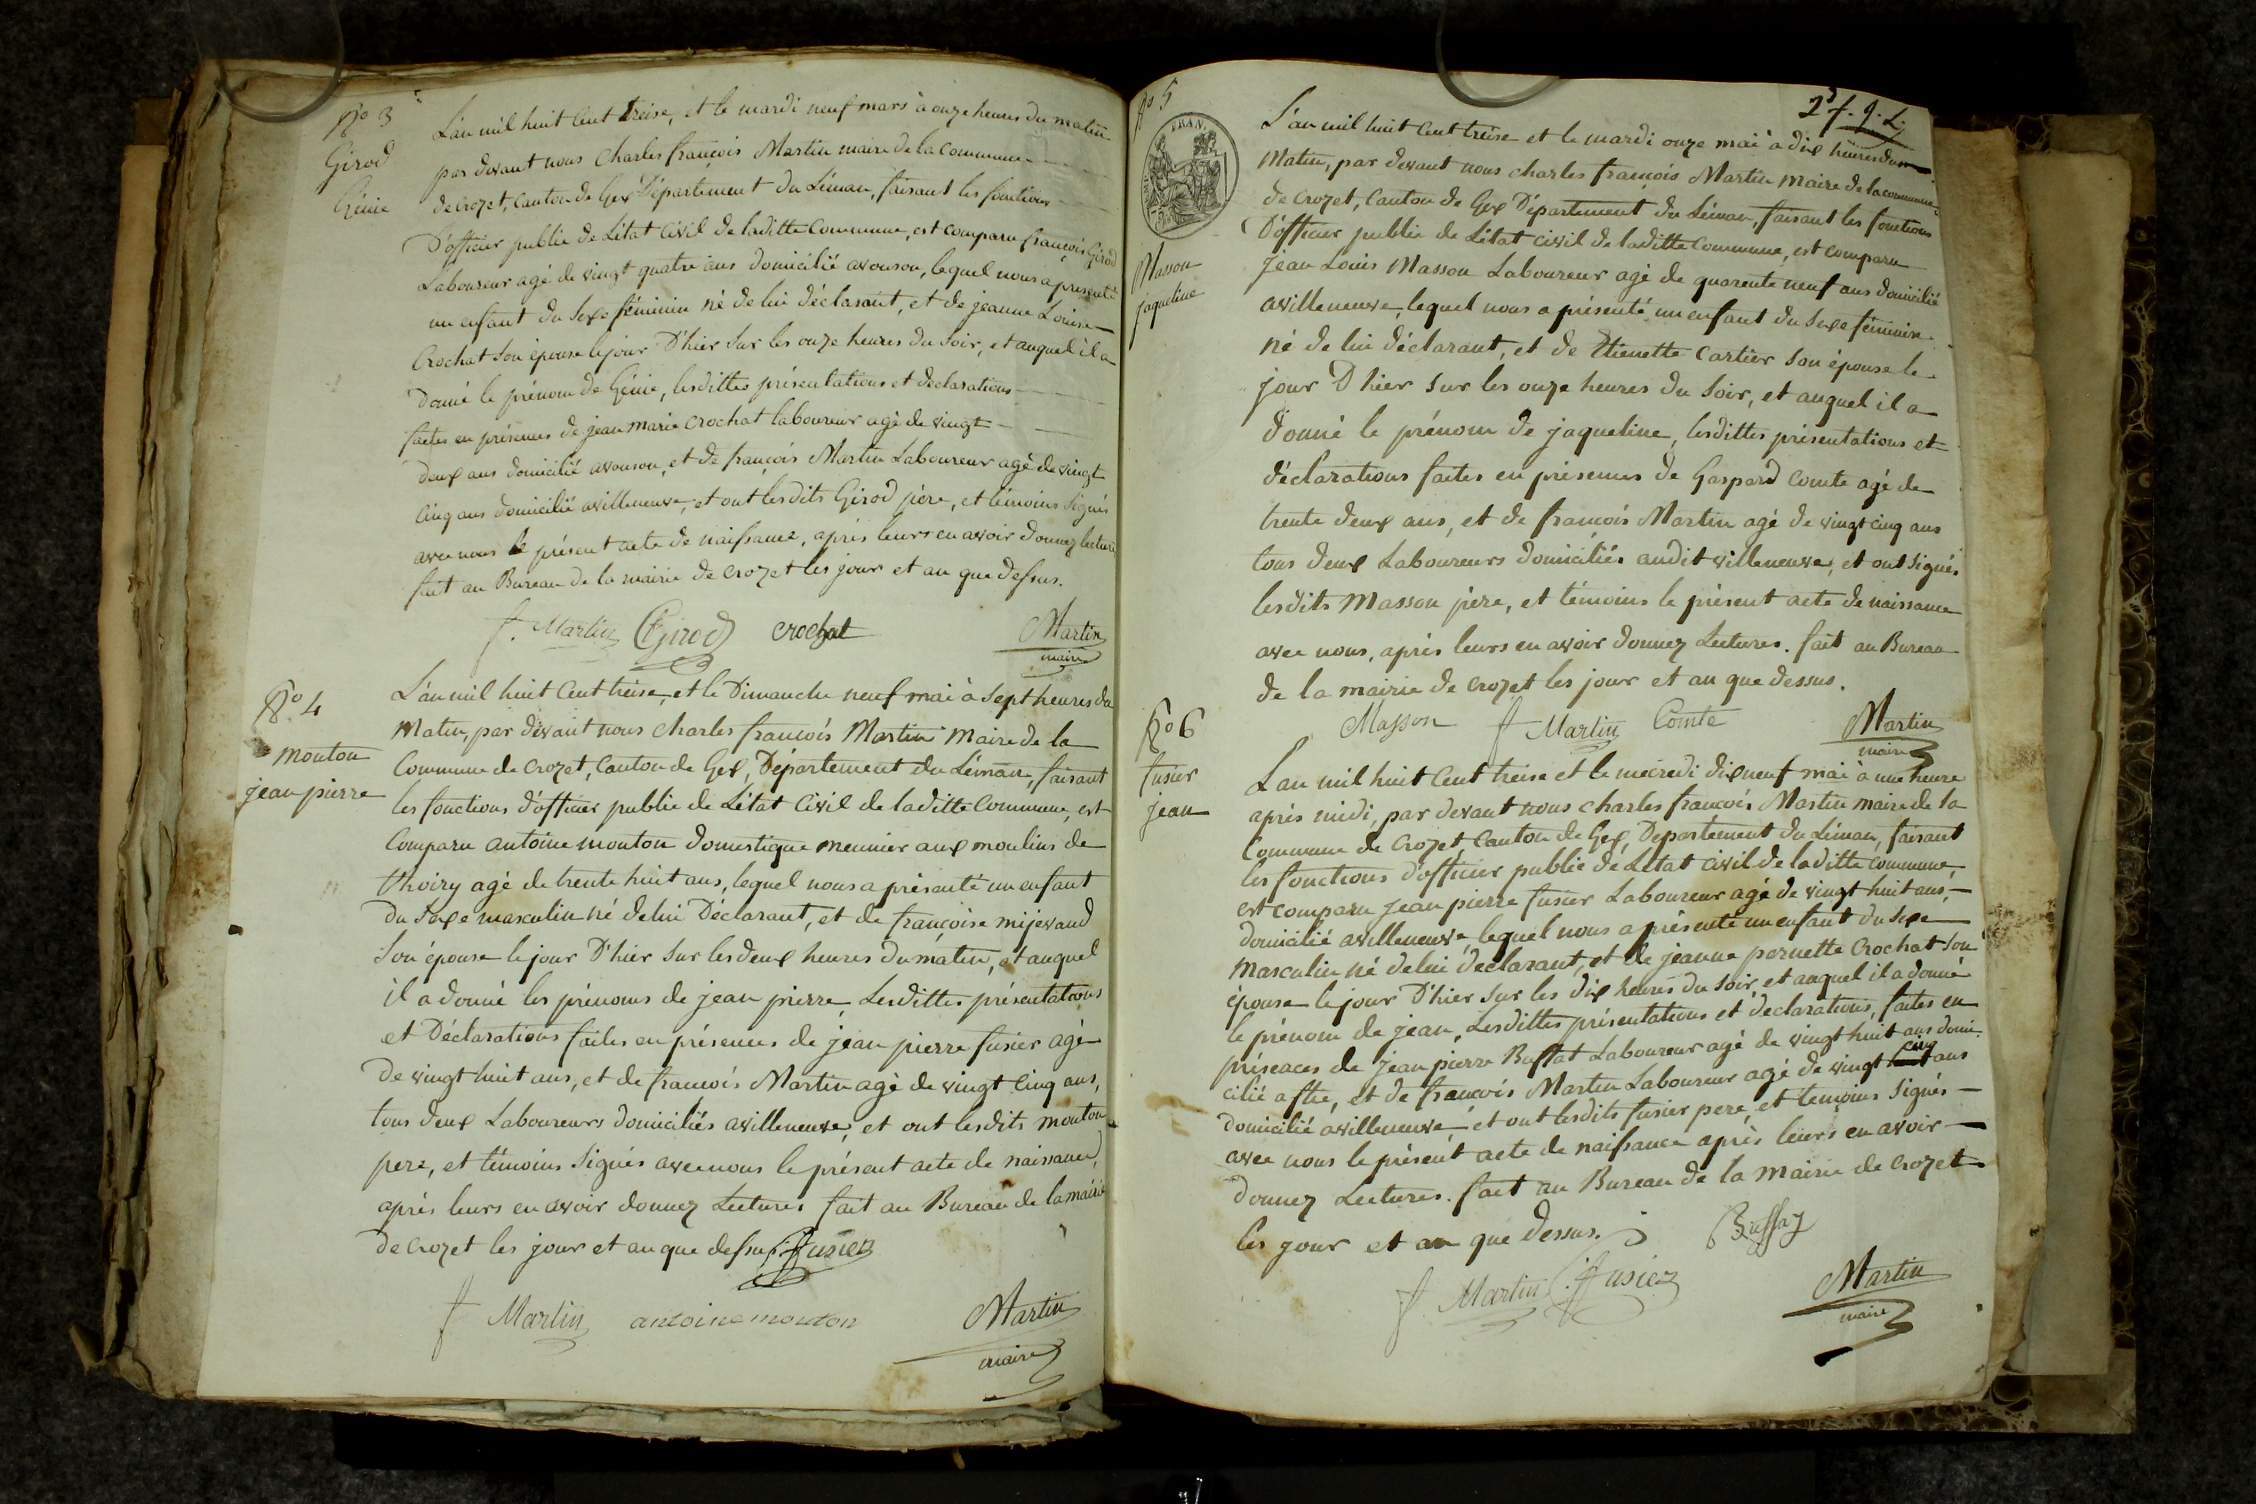 No 3
Girod
Génie
L'an mil huit Cent treise, et le mardi neuf mars à onze heures du matin
par devant nous Charles françois Martin maire de la Commune
de Crozet, Canton de Gex Département du Léman, faisant les fonctions
D'officier public de L'état Civil de laditte Commune, est comparu françois Girod
Laboureur agé de vingt quatre ans domicilié avouson, lequel nous a presenté
un enfant du Sexe féminin né de lui déclarant, et de jeanne Louise
Crochat son épouse le jour D'hier sur les onze heures du soir, et auquel il a
Donné le prénom de Génie, lesdittes présentations et declarations
faites en présences de jean marie Crochat laboureur agé de vingt
deux ans domicilié avouson, et de françois Martin Laboureur agé de vingt
Cinq ans domicilié avilleneuve, et ont lesdits Girod père, et témoins signés
avec nous le présent acte de naissance, après leurs en avoir donnez lecture
fait au Bureau de la mairie de Crozet les jour et an que dessus.
f. Martin Girod crochat Martin
maire
No 4
mouton
jean pierre
L'an mil huit Cent treise, et le Dimanche neuf mai à sept heures du
Matin, par devant nous Charles françois Martin Maire de la
Commune de Crozet, Canton de Gex, Département du Léman, faisant
les fonctions d'officier public de L'état Civil de laditte Commune, est
Comparu antoine mouton domestique meunier aux moulins de
thoiry agé de trente huit ans, lequel nous a présenté un enfant
Du Sexe masculin né de lui Déclarant, et de françoise mijevaud
Son épouse le jour D'hier sur les deux heures du matin, et auquel
il a donné les prénoms de jean pierre, Lesdittes présentations
et Déclarations faites en présences de jean pierre fusier agé
De vingt huit ans, et de françois Martin agé de vingt Cinq ans,
tous deux Laboureurs domiciliés avilleneuve, et ont lesdits mouton
pere, et témoins signés avec nous le présent acte de naissance,
après leurs en avoir donnez Lectures fait au Bureau de la mairie
de Crozet les jour et an que dessus. fusier
f Martin antoine mouton Martin
maire
No 5
FRAN.
Masson
jaqueline
L'an mil huit Cent treise et le mardi onze mai à dix heures du
Matin, par devant nous charles françois Martin Maire de la commune
de Crozet, Canton de Gex Département du Léman, faisant les fonctions
D'officier public de L'état civil de laditte Commune, est comparu
jean Louis Masson Laboureur agé de quarente neuf ans domicilié
avilleneuve, lequel nous a présenté un enfant du sexe féminin
né de lui déclarant, et de Etienette Cartier son épouse le
jour D'hier sur les onze heures du soir, et auquel il a
donné le prénom de jaqueline, lesdittes présentations et
déclarations faites en présences de Gaspard Comte agé de
trente deux ans, et de françois Martin agé de vingt cinq ans
tous deux Laboureurs domiciliés audit villeneuve, et ont signés
lesdits Masson père, et témoins le présent acte de naissance
avec nous, après leurs en avoir donnez Lectures. fait au Bureau
de la mairie de crozet les jour et an que dessus.
Masson f Martin Comte Martin
maire
No 6
fusier
jean
L'an mil huit Cent treise et le mecredi dix neuf mai à une heure
après midi, par devant nous charles françois Martin maire de la
Commune de Crozet Canton de Gex, Departement du Léman, faisant
les fonctions d'officier public de L'état civil de laditte commune,
est comparu jean pierre fusier Laboureur agé de vingt huit ans,
domicilié avilleneuve, lequel nous a présenté un enfant du sexe
Masculin né de lui déclarant, et de jeanne pernette Crochat son
épouse le jour D'hier sur les dix heures du soir, et auquel il a donné
le prénom de jean, Lesdittes présentations et déclarations, faites en
préseaces de jean pierre Buffat Laboureur agé de vingt huit ans domi
cilié aflie, et de françois Martin Laboureur agé de vingt cinq ans
domicilié avilleneuve, et ont lesdits fusier pere, et temoins signés
avec nous le présent acte de naissance après leurs en avoir
donnez Lectures. fait au Bureau de la Mairie de Crozet
les jour et an que dessus. Buffaz
f Martin fusier Martin
maire